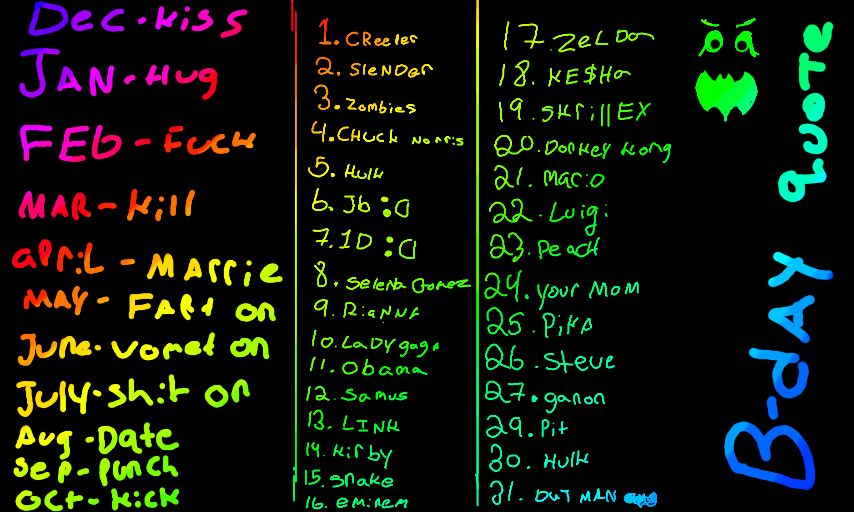 Dec-kiss
JAN-Hug
FEb-Fuck
MAR-kill
april-MArrie
MAY-FARt on
June-vomet on
July-shit on
Aug-Date
sep-punch
oct-kick
1. CReeper
2. SleNDer
3. Zombies
4. CHuck Norris
5. Hulk
6. Jb :C
7. 1D :C
8. Selena Gomez
9. RiaNNA
10. LaDygaga
11. Obama
12. Samus
13. LINK
14. kirby
15. snake
16. eminem
17. ZeLDa
18. KE$Ha
19. skrillEX
20. Donkey kong
21. Mario
22. Luigi
23. Peach
24. your Mom
25. PikA
26. Steve
27. ganon
29. Pit
30. Hulk
31. DUT MAN
B-dAY quote